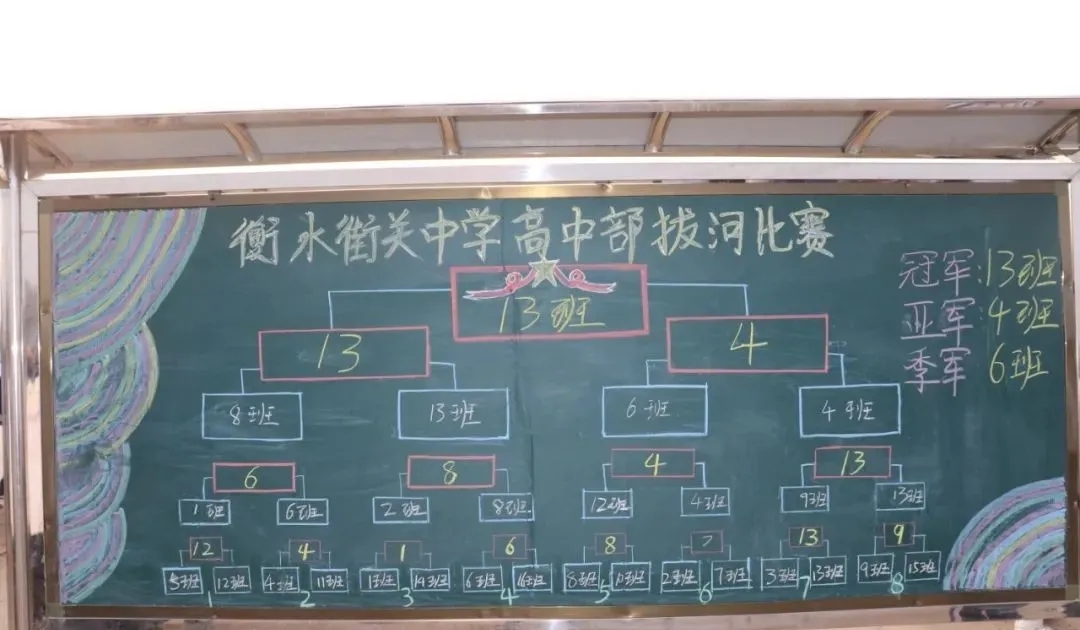 衡水衡关中学高中部拔河比赛
冠军:13班
亚军:4班
季军 6班
13班
13 4
8班 13班 6班 4班
6 8 4 13
1班 6班 2班 8班 12班 4班 9班 13班
12 4 1 6 8 13 9
5班 12班 4班 11班 6班 16班 8班 2班 7班 3班 13班 9班 15班
1 2 3 4 5 6 7 8